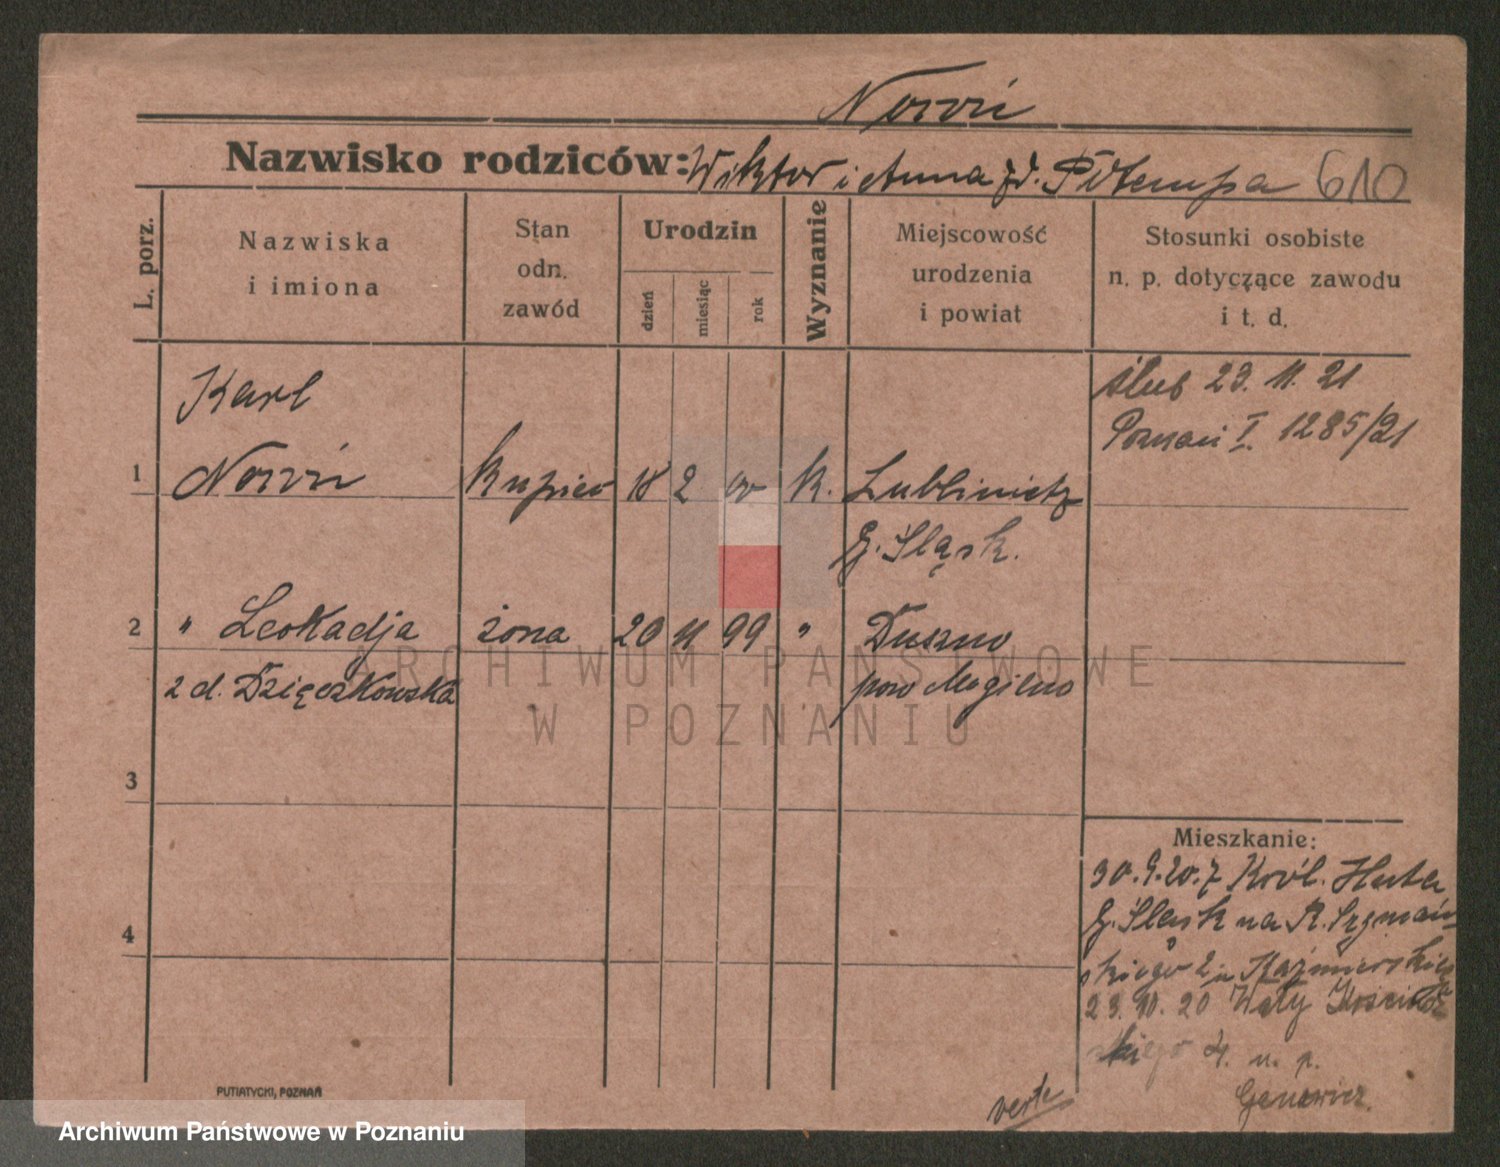 Nowiń
Nazwisko rodziców: Wiktor i Anna zd. Potempa 610
L. porz.
Nazwiska
i imiona
Stan
odn.
zawód
Urodzin
dzień
miesiąc
rok
Wyznanie
Miejscowość
urodzenia
i powiat
Stosunki osobiste
n. p. dotyczące zawodu
i t. d.
Karl
1 kupiec 18 2 00 k. Lublinietz
G. Śląsk.
ślub 23. 11. 21
Poznań I. 1285/21
2 " Leokadja żona 20 11 99 " Duszno
z d. Dzięczkowska pow Mogilno
3
4
Mieszkanie:
30.9.20. z Król. Huta
G. Śląsk na R.
skiego 2 u
23. 10. 20 Wały
4. u. p.
verte
PUTIATYCKI, POZNAŃ
ARCHIWUM PAŃSTWOWE
W POZNANIU
Archiwum Państwowe w Poznaniu